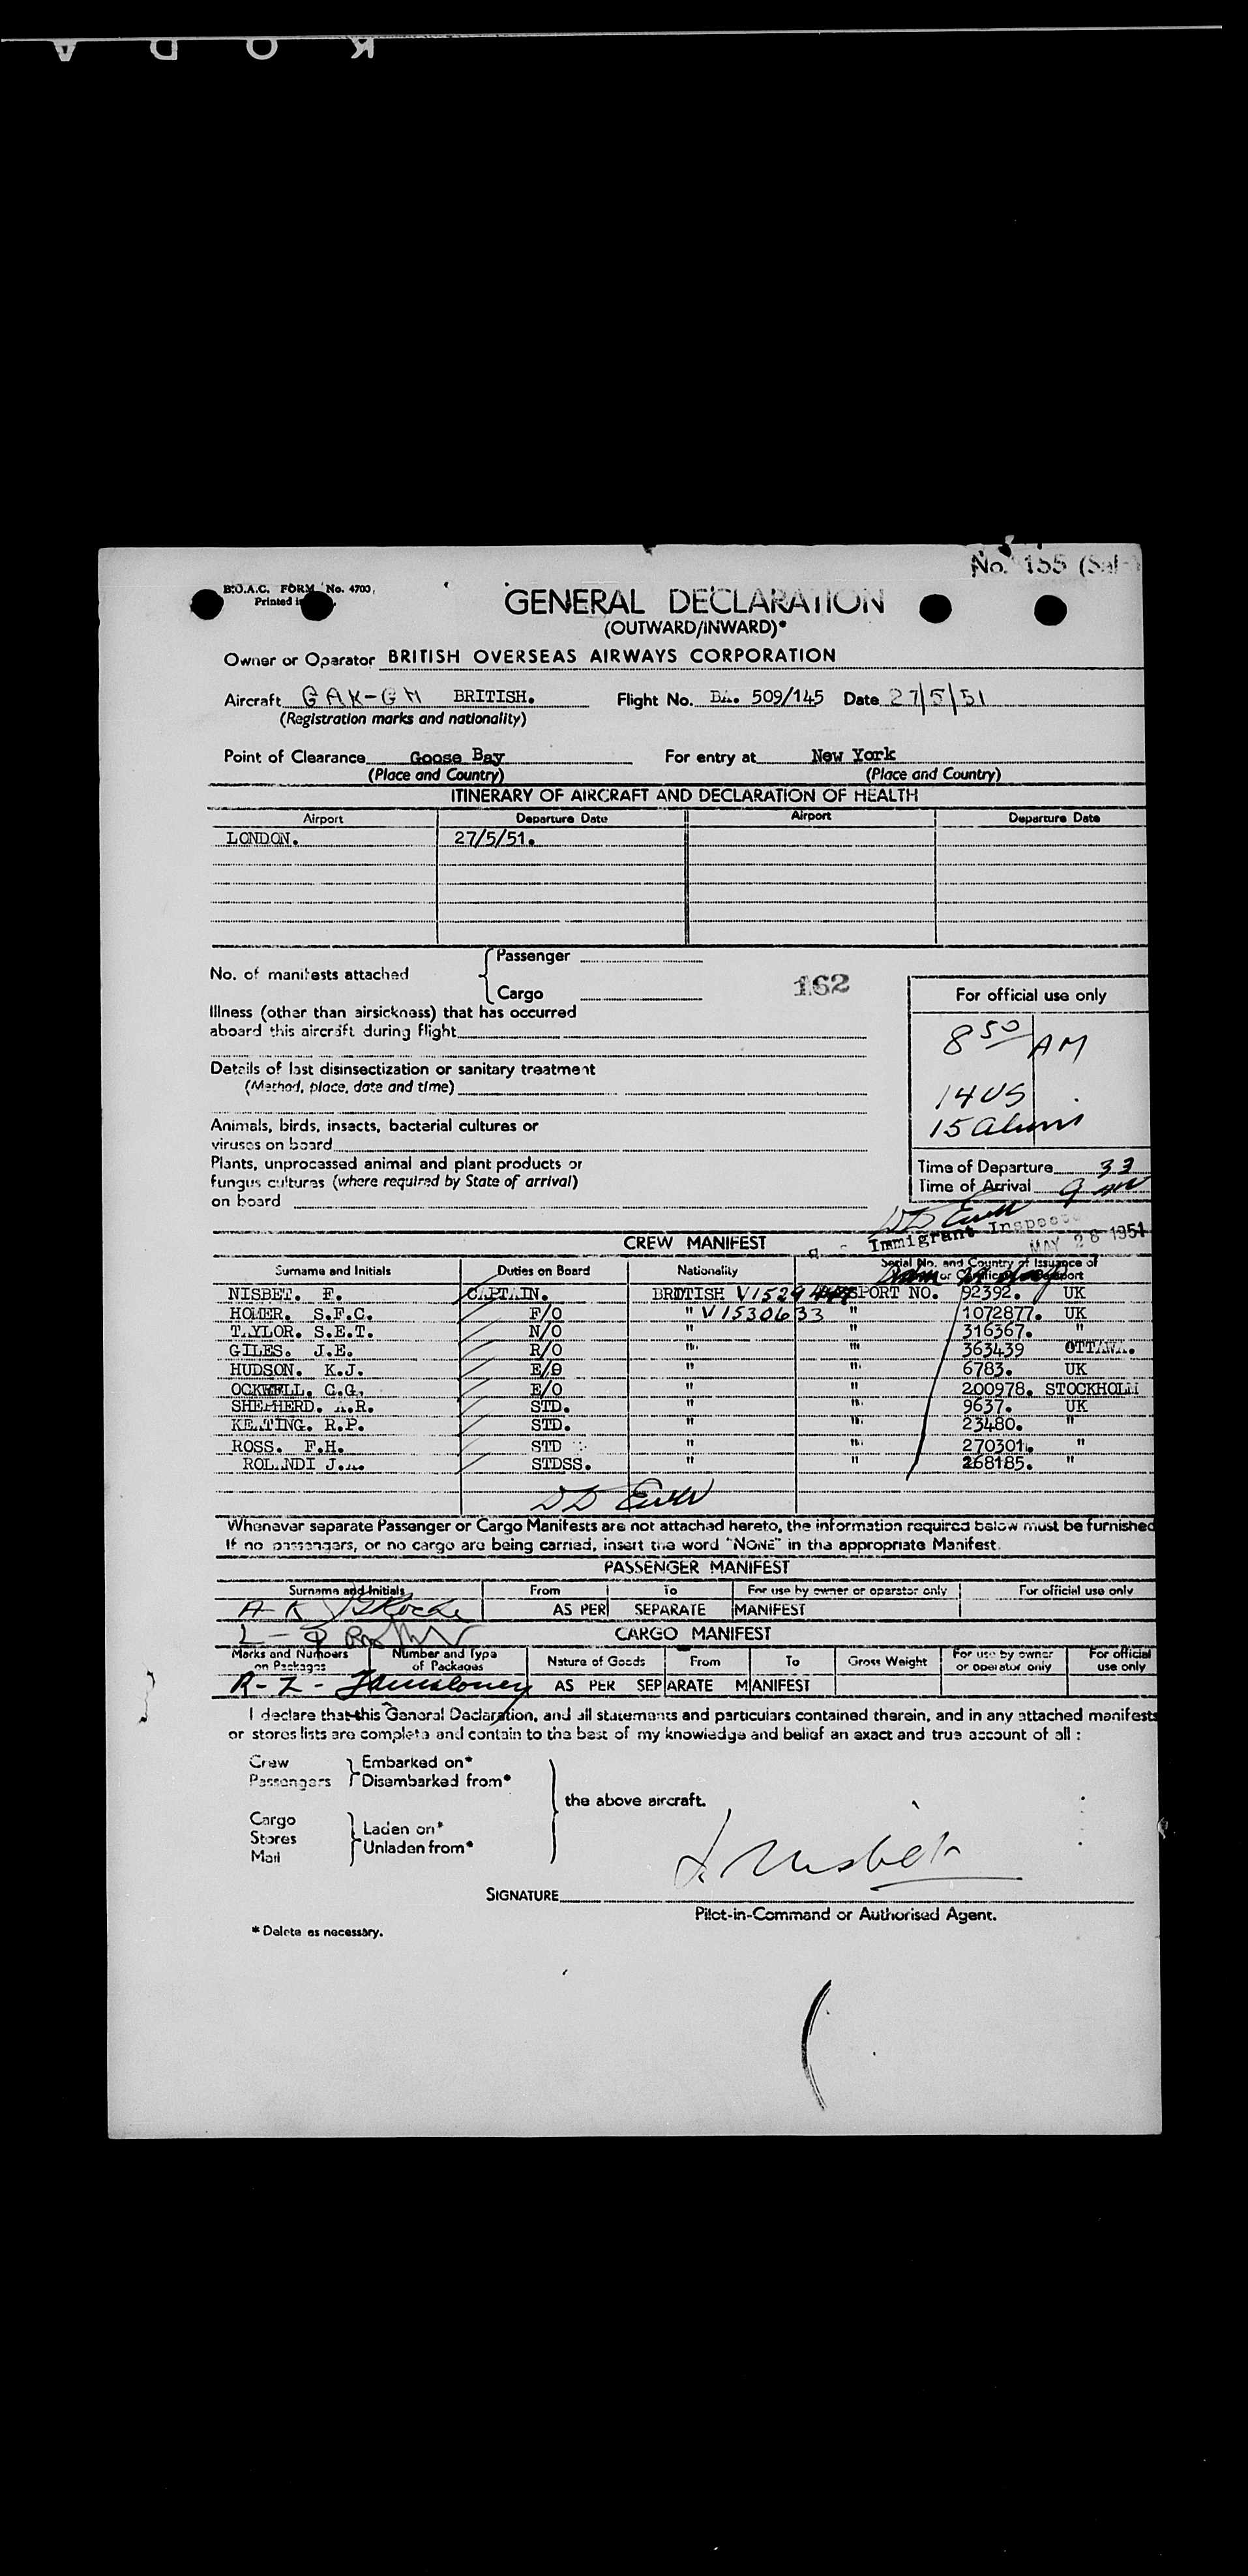 KODA
No. 155
B.O.A.C. FORM No. 4700,
Printed in
GENERAL DECLARATION
(OUTWARD/INWARD)*
Owner or Operator BRITISH OVERSEAS AIRWAYS CORPORATION
Aircraft GAK-GH BRITISH. Flight No. BA. 509/145 Date 27/5/51
(Registration marks and nationality)
Point of Clearance Goose Bay For entry at New York
(Place and Country) (Place and Country)
ITINERARY OF AIRCRAFT AND DECLARATION OF HEALTH
Airport Departure Date Airport Departure Date
LONDON. 27/5/51.
No. of manifests attached
Passenger
Cargo
162
For official use only
8 50 AM
14 US
15 aliens
Illness (other than airsickness) that has occurred
aboard this aircraft during flight
Details of last disinsectization or sanitary treatment
(Method, place, date and time)
Animals, birds, insects, bacterial cultures or
viruses on board
Plants, unprocessed animal and plant products or
fungus cultures (where required by State of arrival)
on board
Time of Departure 33
Time of Arrival 9
Immigrant Inspector
MAY 28 1951
CREW MANIFEST
Surname and Initials Duties on Board Nationality Serial No. and Country of Issuance of
or Certificate Passport
NISBET. F. CAPTAIN. BRITISH PASSPORT NO. 92392. UK
HOMER. S.F.C. F/O " V1530633 " 1072877. UK
TAYLOR. S.E.T. N/O " " 316367. "
GILES. J.E. R/O " " 363439 OTTAWA.
HUDSON. K.J. E/O " " 6783. UK
OCKWELL. C.G. E/O " " 200978. STOCKHOLM
SHEPHERD. A.R. STD. " " 9637. UK
KEATING. R.P. STD. " " 23480. "
ROSS. F.H. STD " " 270301. "
ROLANDI J.A. STDSS. " " 268185. "
Whenever separate Passenger or Cargo Manifests are not attached hereto, the information required below must be furnished
If no passengers, or no cargo are being carried, insert the word "NONE" in the appropriate Manifest.
PASSENGER MANIFEST
Surname and Initials From To For use by owner or operator only For official use only
AS PER SEPARATE MANIFEST
CARGO MANIFEST
Marks and Numbers on Packages Number and Type of Packages Nature of Goods From To Gross Weight For use by owner or operator only For official use only
AS PER SEPARATE MANIFEST
I declare that this General Declaration, and all statements and particulars contained therein, and in any attached manifests
or stores lists are complete and contain to the best of my knowledge and belief an exact and true account of all :
Crew
Passengers
Embarked on*
Disembarked from*
Cargo
Stores
Mail
Laden on*
Unladen from*
the above aircraft.
SIGNATURE F. Nisbet
Pilot-in-Command or Authorised Agent.
* Delete as necessary.